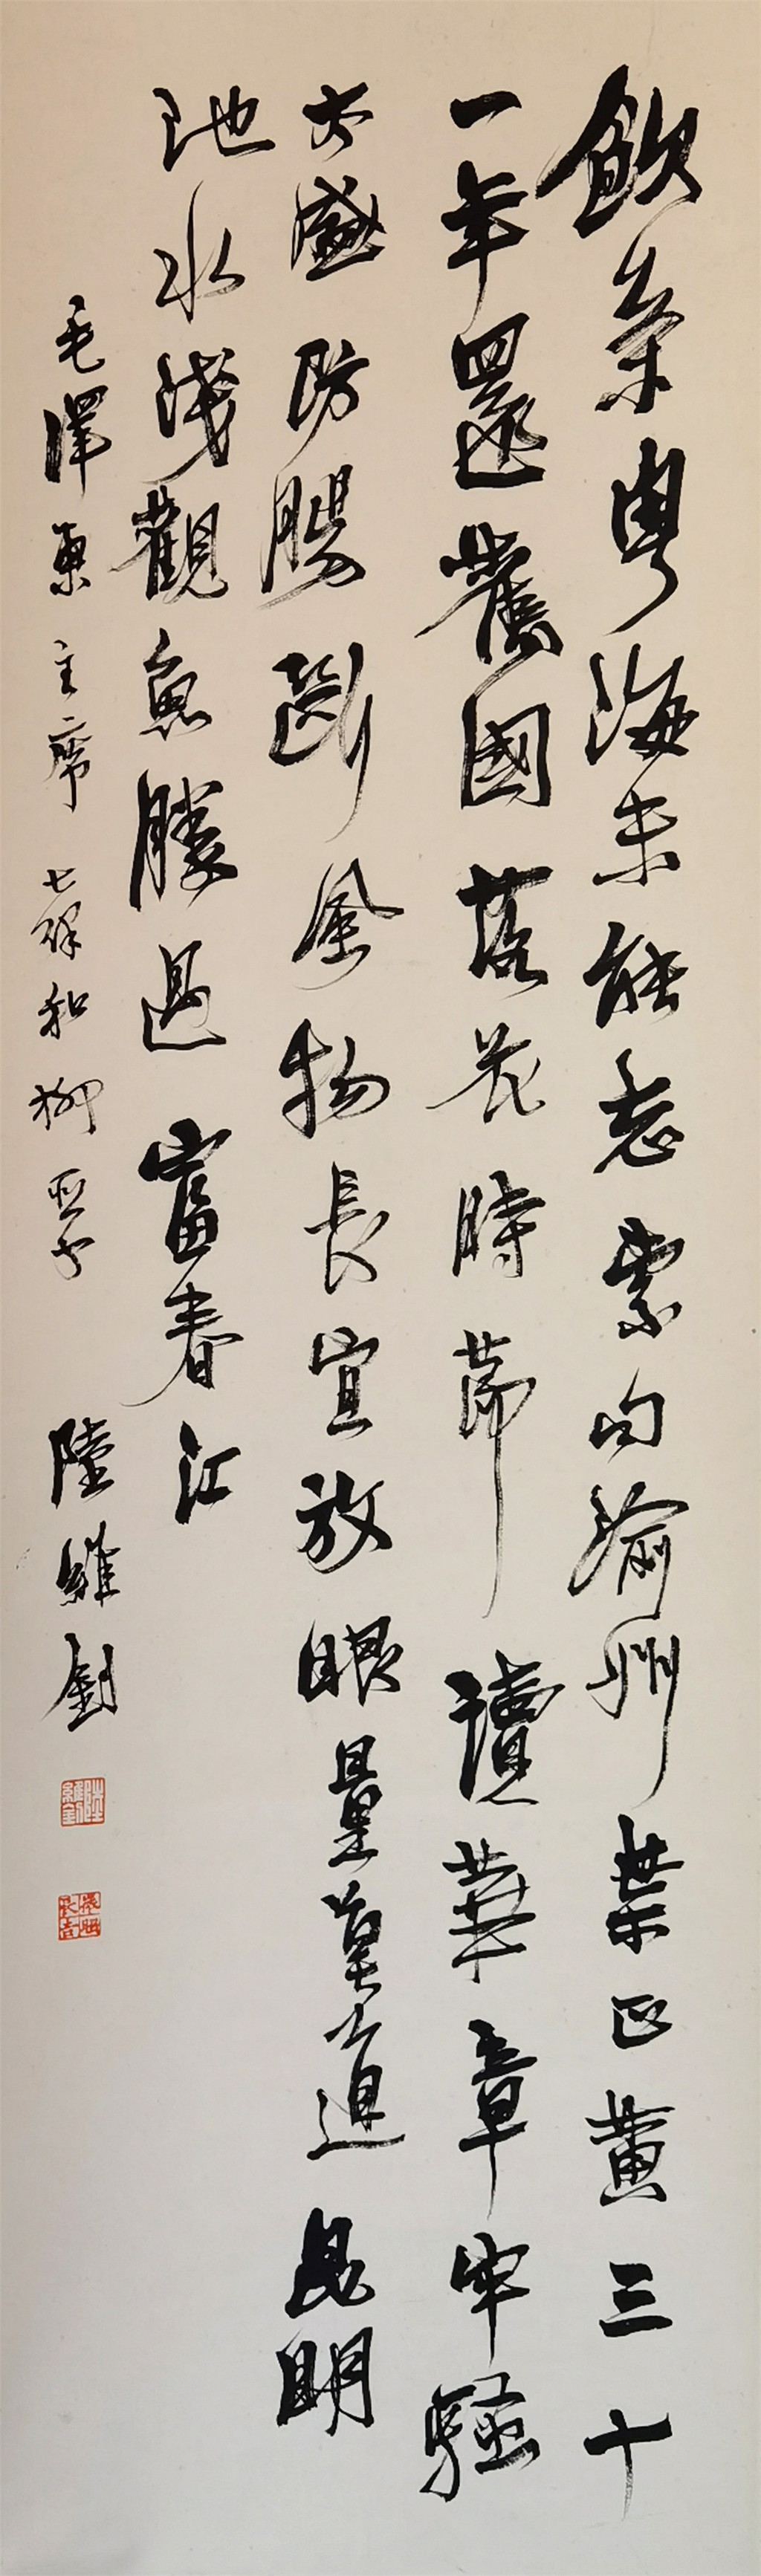 飲茶粵海未能忘索句渝州葉正黃三十
一年還舊國落花時節讀華章牢騷
太盛防腸斷風物長宜放眼量莫道昆明
池水淺觀魚勝過富春江
毛澤東主席七律和柳亞子 陸維釗
陸維釗